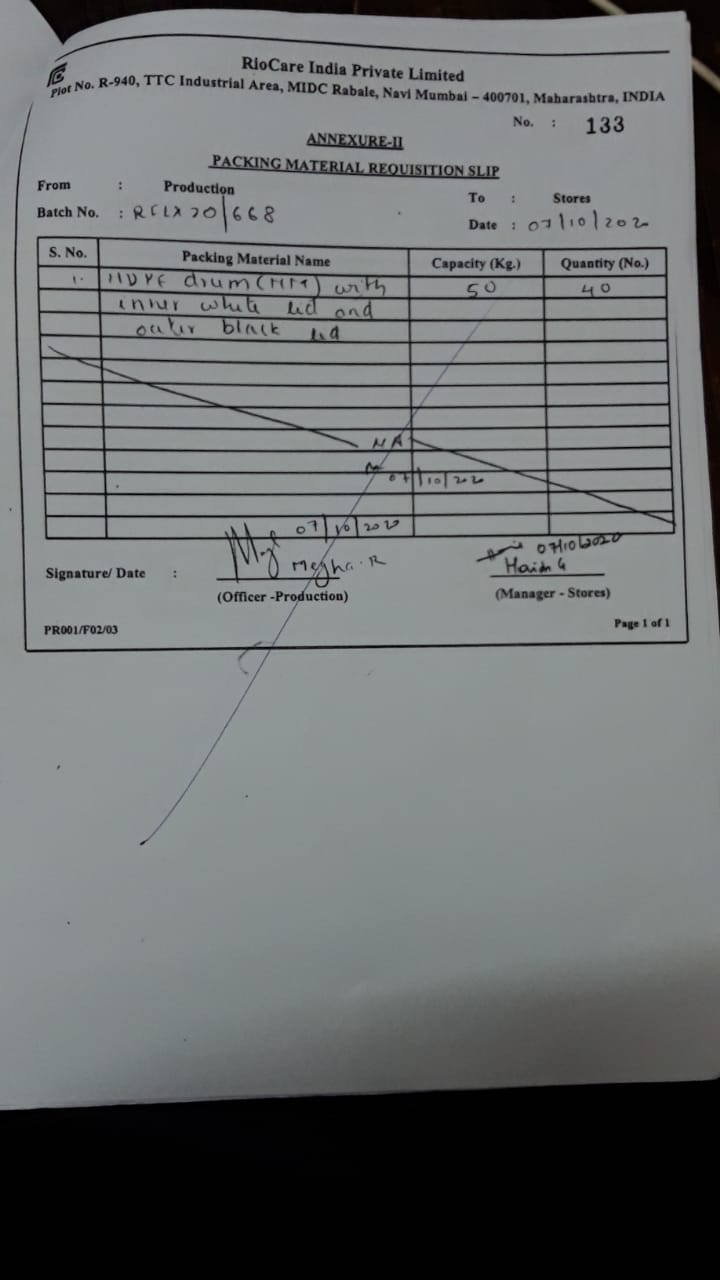 RioCare India Private Limited
Plot No. R-940, TTC Industrial Area, MIDC Rabale, Navi Mumbai – 400701, Maharashtra, INDIA
No. : 133
ANNEXURE-II
PACKING MATERIAL REQUISITION SLIP
From : Production
To : Stores
Batch No. : RCLX20/668
Date : 07/10/2020
S. No. Packing Material Name Capacity (Kg.) Quantity (No.)
1. HDPE drum (HM) with 50 40
inner white lid and
outer black lid
NA
07/10/2020
07/10/2020
07/10/2020
Signature/ Date : Megha.R
(Officer -Production) (Manager - Stores)
PR001/F02/03 Page 1 of 1